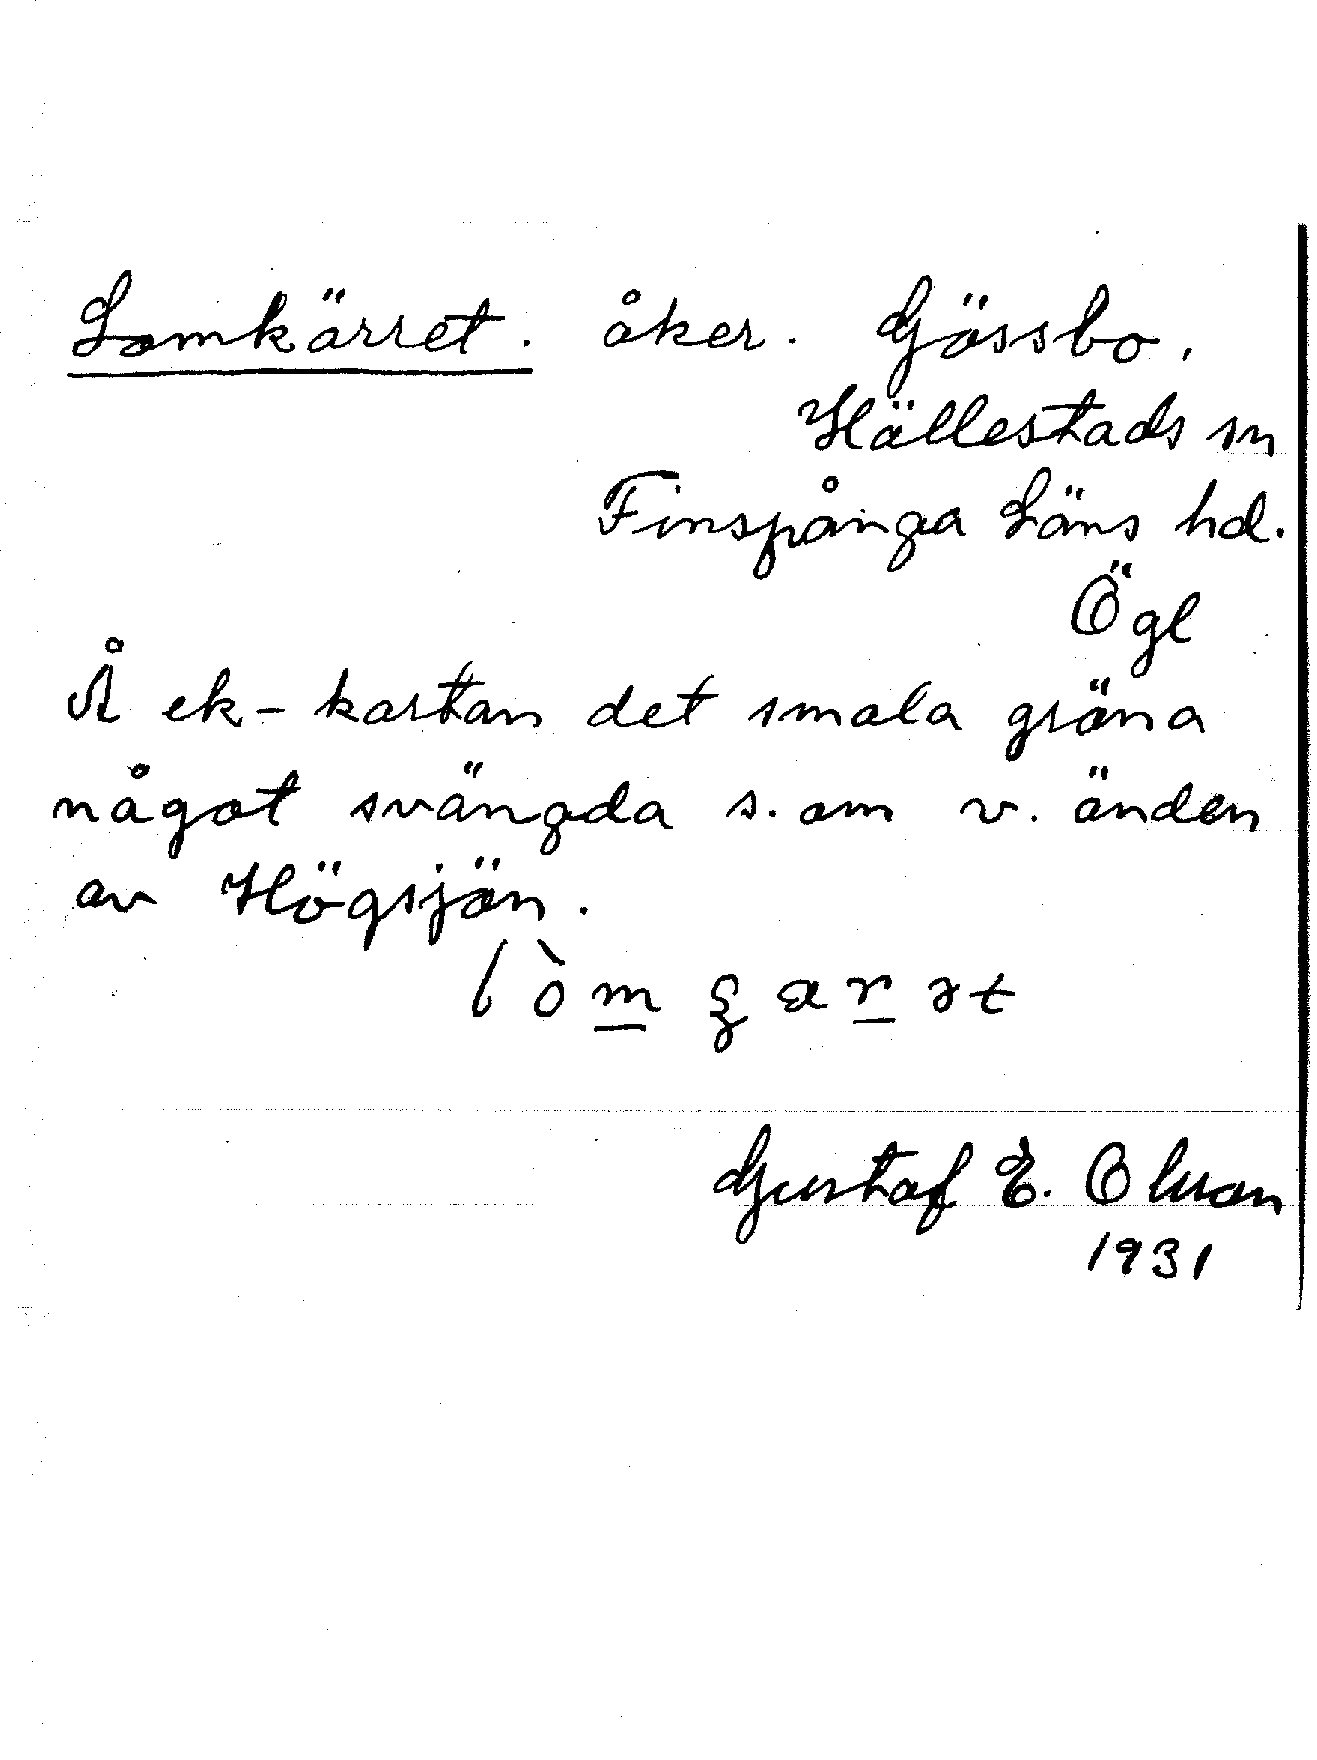 Lomkärret. åker. Gössbo.
Hällestads sn
Finspånga Läns hd.
Ögl
Å ek-kartan det smala gröna
något svängda s. om v. änden
av Högsjön.
Gustaf E. Olsson
1931